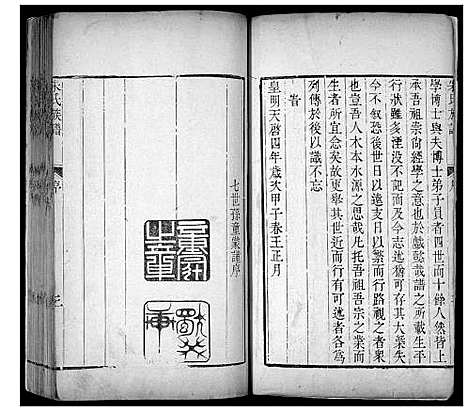 學博士與夫博士弟子員者四世而十餘人然皆
承吾祖崇尚經學之意也於戲懿哉譜之所載生平
行狀而遺文不記而及今志遠猶可存其大槩失
今不叙恐後世日以遠支日以繁而行路視之者衆
也豈吾人木本水源之思凡托吾祖吾宗之業而
生者所宜念矣故更舉其世近而行有可述者各為
列傳於後以識不忘
旹
皇明天啓四年歲次甲子春王正月
七世孫童蒙謹序
宋氏族譜
序
三